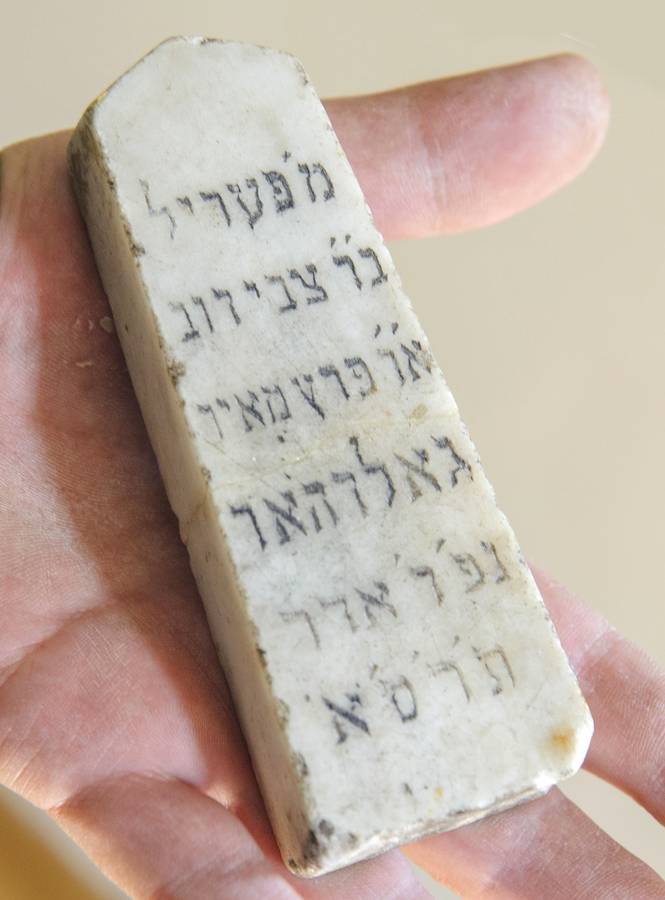 מ׳ פעריל
ב״ר צבי דוב
א״ו פרץ מאיר
גאלדהאר
נפ׳ ד׳ אדר
ת׳ר׳ס׳א